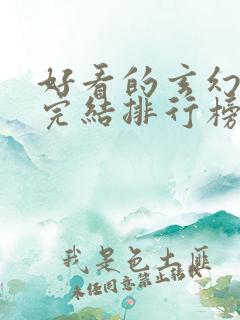 好看的玄幻
完结排行榜
我是色土匪
未经同意禁止转载